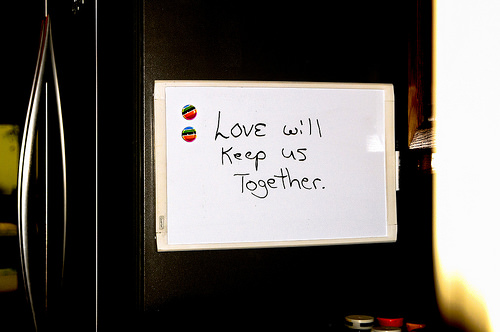 LOVE will
Keep us
Together.